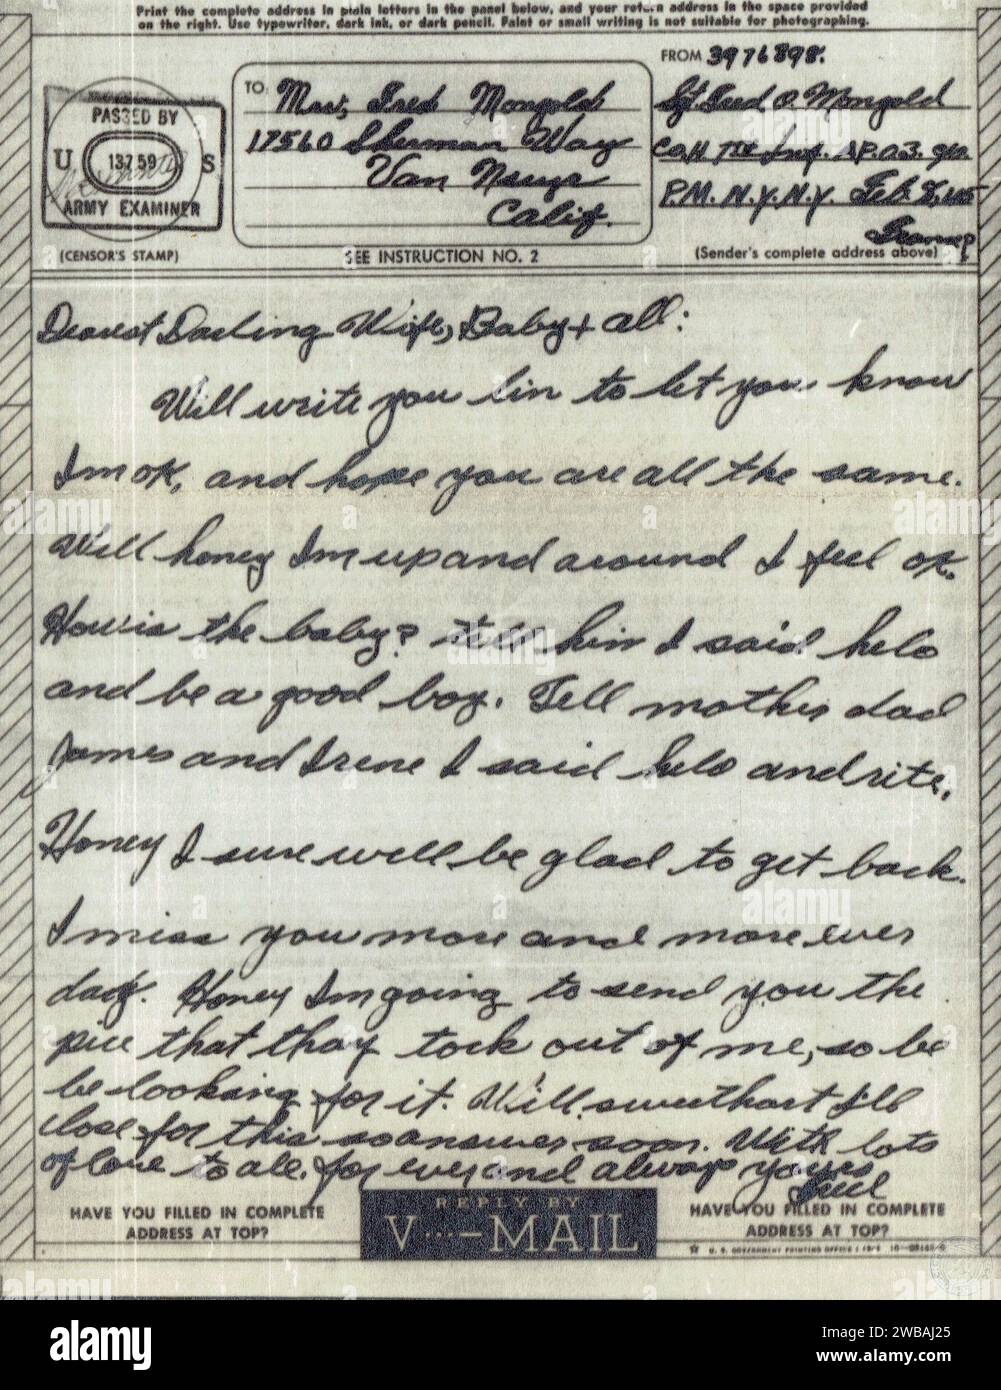 Print the complete address in plain letters in the panel below, and your return address in the space provided
on the right. Use typewriter, dark ink, or dark pencil. Faint or small writing is not suitable for photographing.
FROM 3976898.
TO
Mrs, Fred Mongold
17560 Sherman Way
Van Nuys
Calif.
Sgt. Fred O. Mongold
Co. H 7th Inf. A.P.O. 3.
P.M. N.Y. N.Y. Feb. 8,
France
PASSED BY
U 13759 S
ARMY EXAMINER
(CENSOR'S STAMP)
SEE INSTRUCTION NO. 2
(Sender's complete address above)
Dearest Darling Wife, Baby + all:
Will write you lin to let you know
Im ok, and hope you are all the same.
Well honey Im up and around I feel ok.
How is the baby? tell him I said helo
and be a good boy. Tell mother dad
James and Irene I said helo and rite.
Honey I sure well be glad to get back.
I miss you more and more ever
day. Honey Im going to send you the
pice that thay tock out of me, so be
be looking for it. Will sweethart I'll
close for this so answer soon. With lots
of love to all. for ever and always yours
Fred
HAVE YOU FILLED IN COMPLETE
ADDRESS AT TOP?
REPLY BY
V···—MAIL
HAVE YOU FILLED IN COMPLETE
ADDRESS AT TOP?
U. S. GOVERNMENT PRINTING OFFICE
alamy
Image ID: 2WBAJ25
www.alamy.com